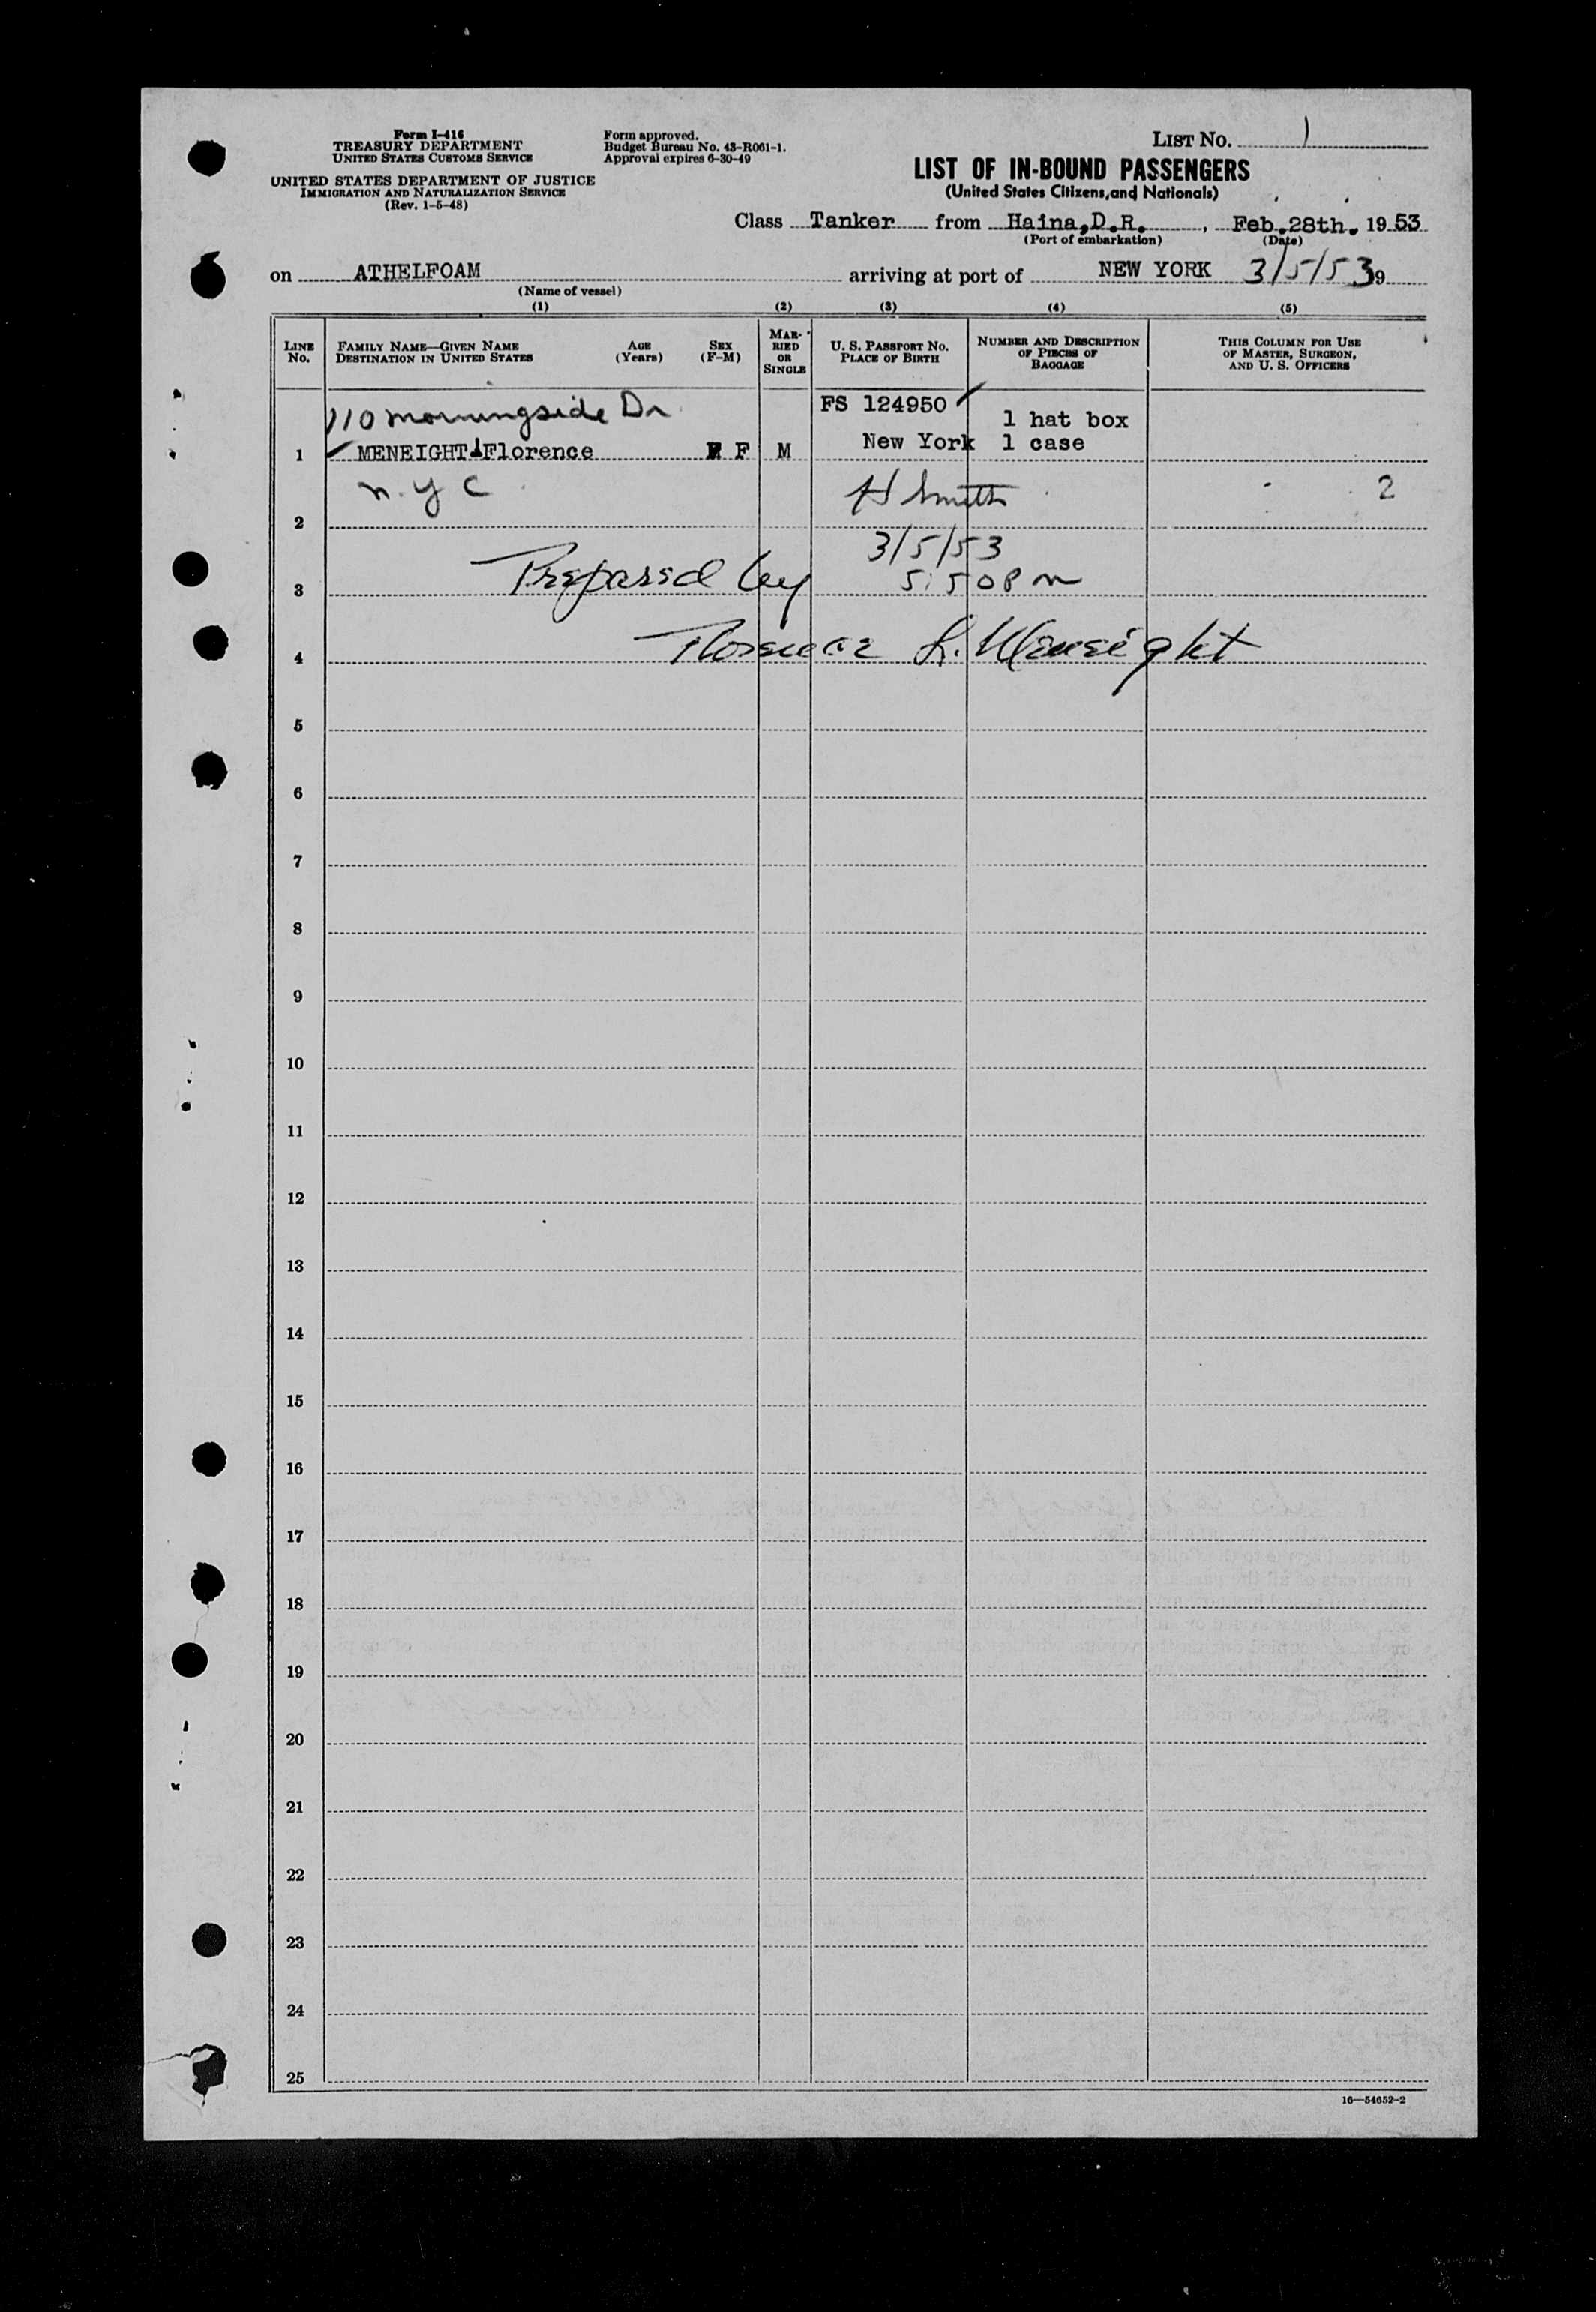 Form I-416
TREASURY DEPARTMENT
UNITED STATES CUSTOMS SERVICE
UNITED STATES DEPARTMENT OF JUSTICE
IMMIGRATION AND NATURALIZATION SERVICE
(Rev. 1-5-48)
Form approved.
Budget Bureau No. 43-R061-1.
Approval expires 6-30-49
LIST NO. 1
LIST OF IN-BOUND PASSENGERS
(United States Citizens, and Nationals)
Class Tanker from Haina,D.R. , Feb.28th. 1953
(Port of embarkation) (Date)
on ATHELFOAM arriving at port of NEW YORK 3/5/53 9
(Name of vessel)
(1) (2) (3) (4) (5)
LINE No.
FAMILY NAME—GIVEN NAME
DESTINATION IN UNITED STATES
AGE (Years)
SEX (F-M)
MARRIED OR SINGLE
U. S. PASSPORT NO.
PLACE OF BIRTH
NUMBER AND DESCRIPTION OF PIECES OF BAGGAGE
THIS COLUMN FOR USE OF MASTER, SURGEON, AND U. S. OFFICERS
110 Morningside Dr FS 124950 1 hat box
1 MENEIGHT Florence F M New York 1 case
N.Y C H Smith 2
2
3/5/53
3 Prepared by 5:50 P m
4 Florence L. Meneight
5
6
7
8
9
10
11
12
13
14
15
16
17
18
19
20
21
22
23
24
25
16—54652-2